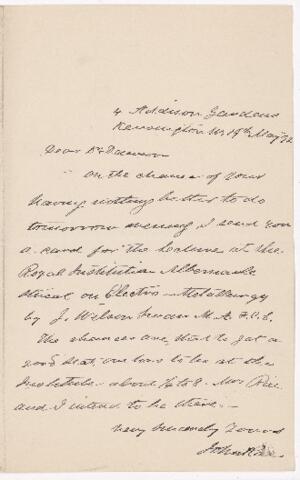 4 Addison Gardens
Kensington W. 19th May 92
Dear Dr
On the chance of your
having nothing better to do
tomorrow evening I send you
a card for the Lecture at the
Royal Institution Albemarle
Street on Electro-Metallurgy
by J. Wilson Swan M.A.
The chances are that to get a
good seat, one has to be at the
Institute about to 8. Mrs Rae
and I intend to be there.
Very Sincerely Yours
John Rae